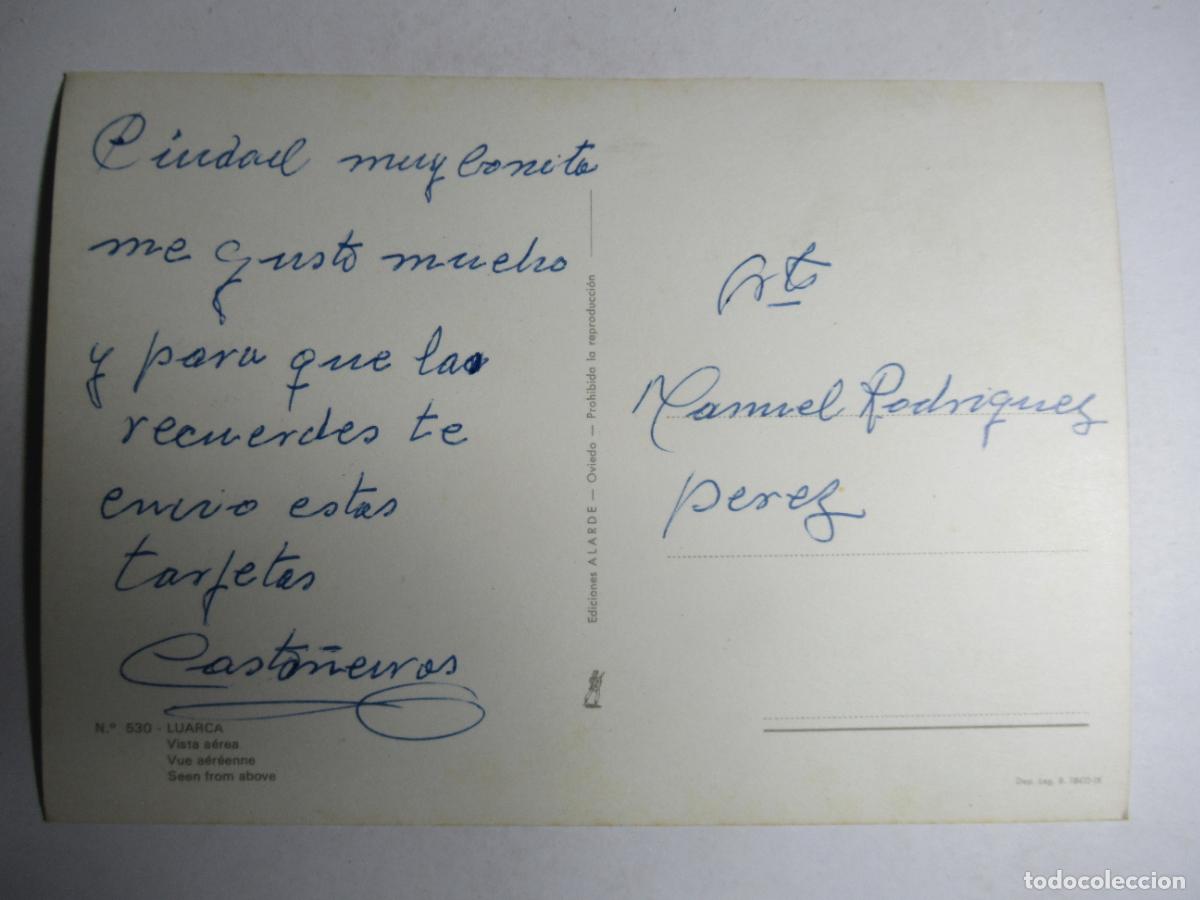 Ciudad muy bonita
me gusto mucho
y para que la
recuerdes te
envio estas
tarjetas
Castañeiros
N.º 530 - LUARCA
Vista aérea
Vue aéréenne
Seen from above
Ediciones ALARDE — Oviedo — Prohibida la reproducción
Manuel Rodriguez
perez
Dep. Leg. B.
todocoleccion